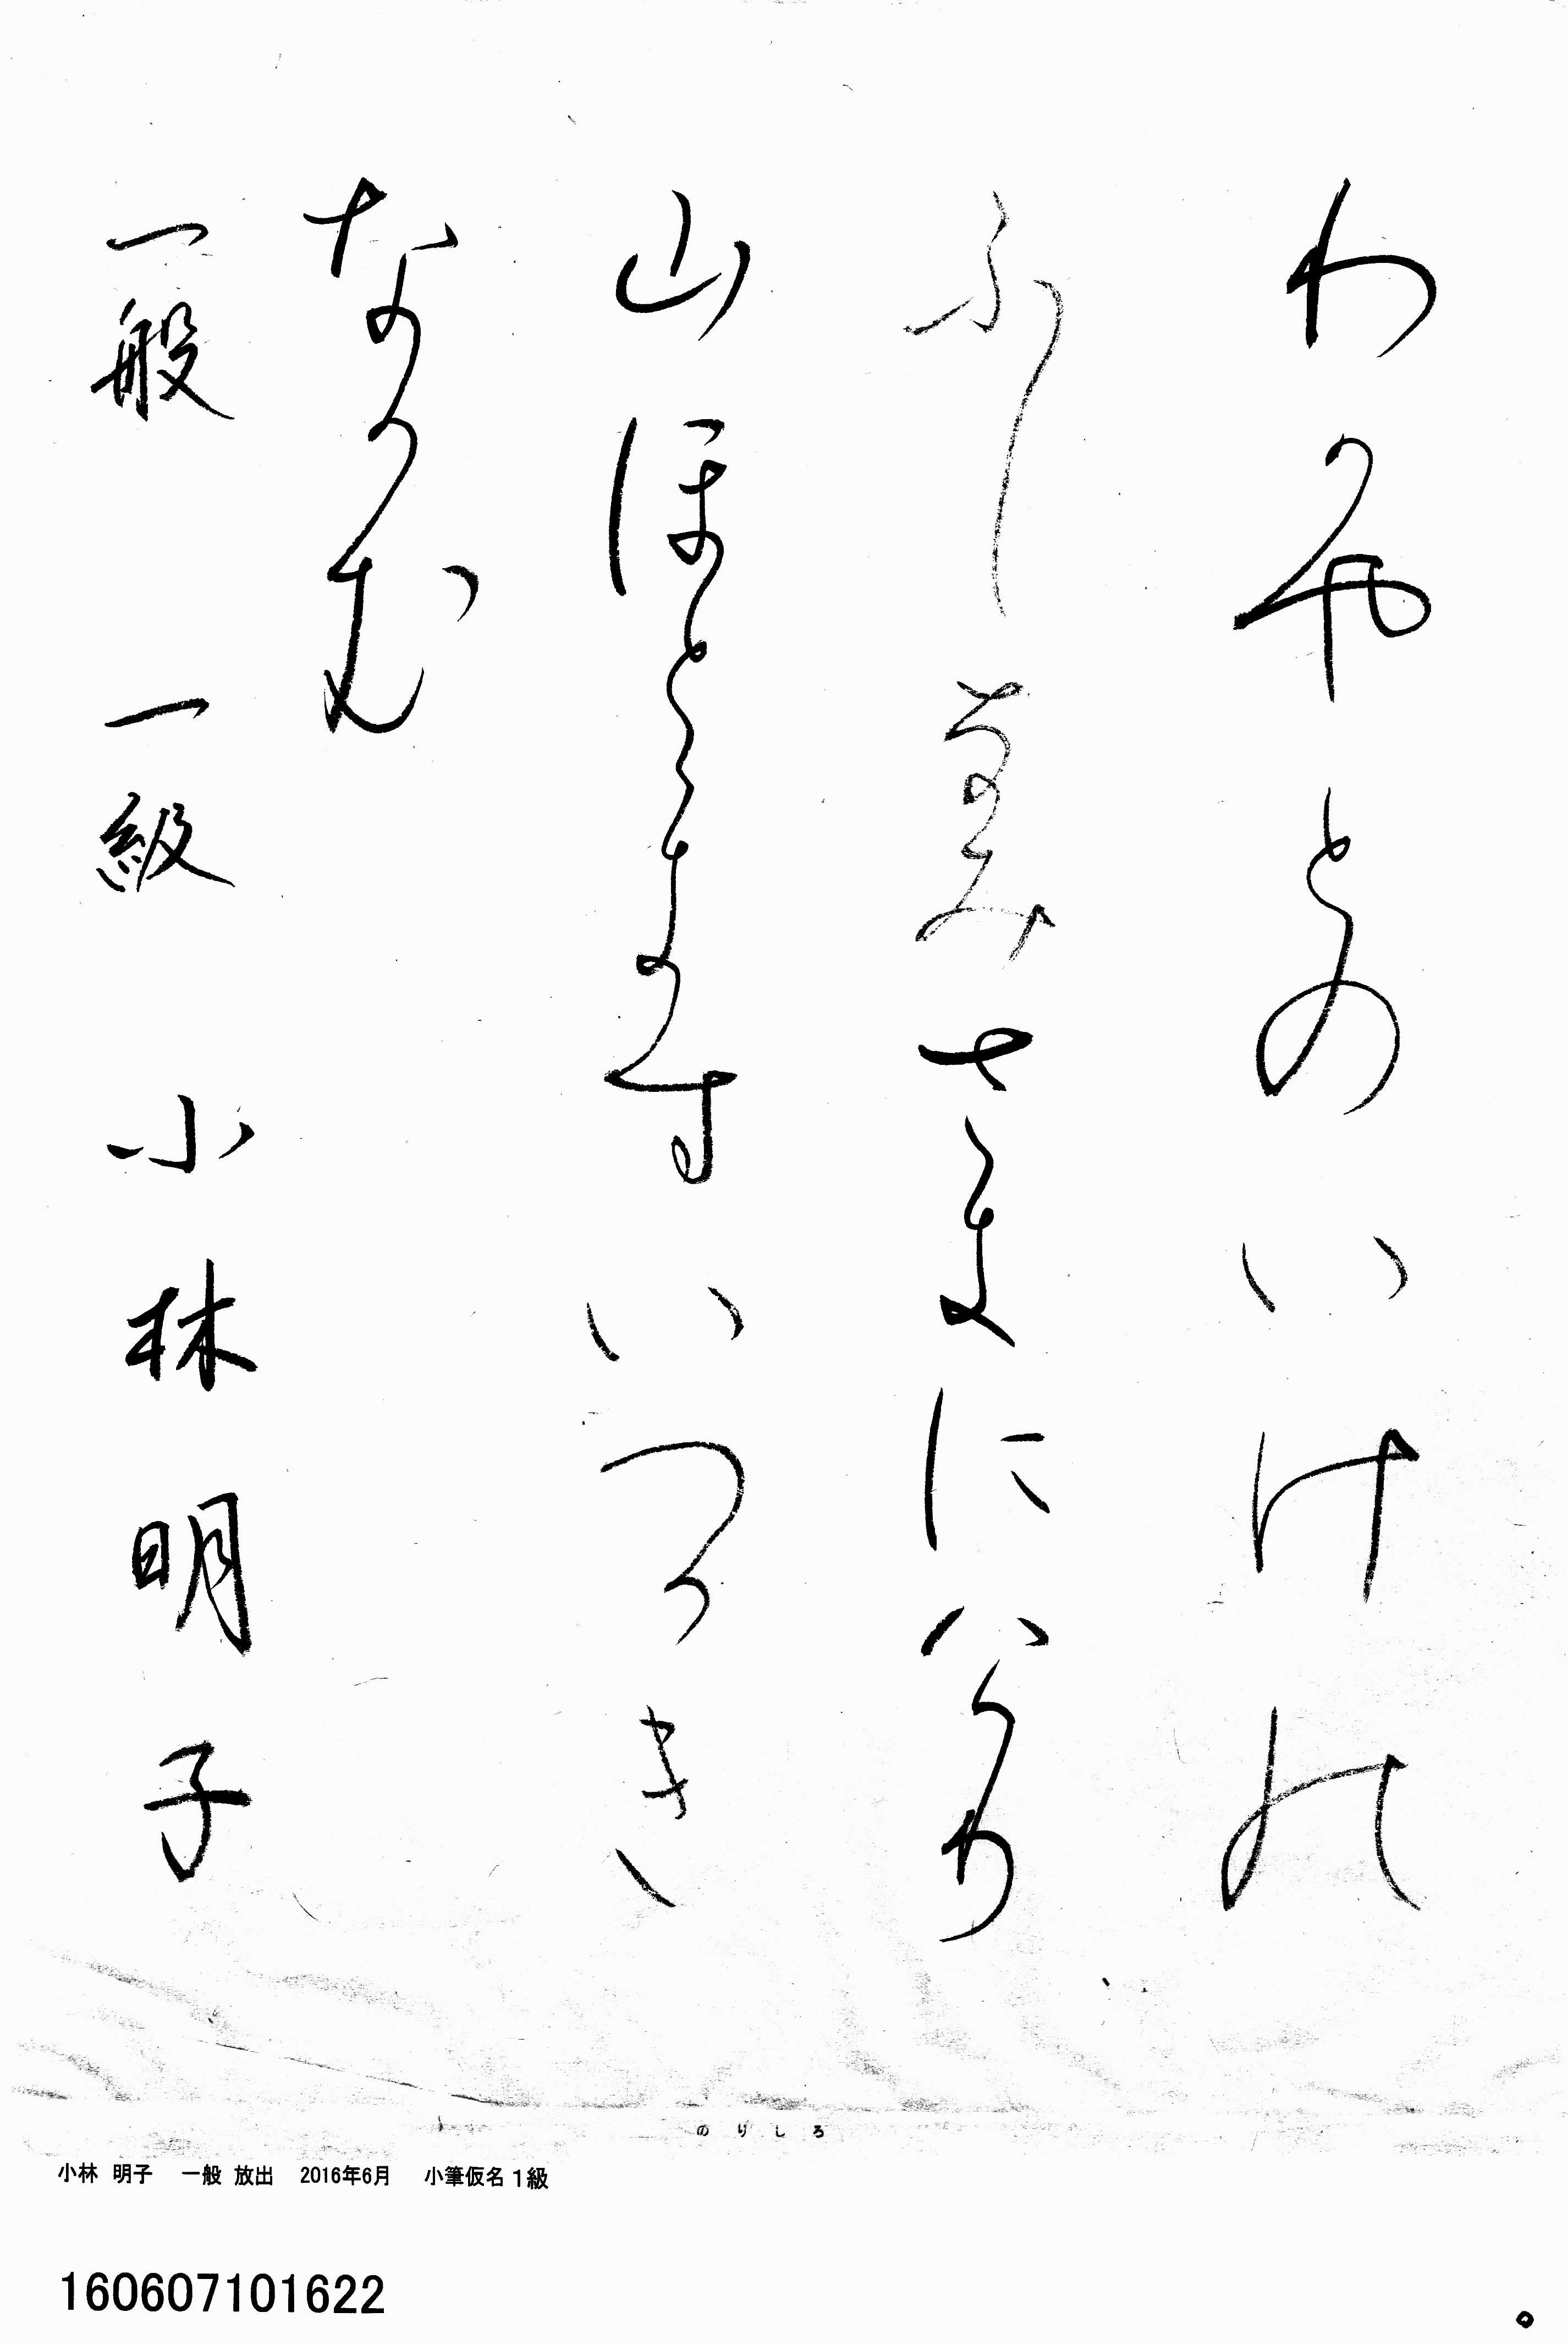 わかやとのいけの
ふしなみさきにけり
山ほとゝきすいつかき
なかむ
一般 一級 小林明子
のりしろ
小林 明子 一般 放出 2016年6月 小筆仮名1級
160607101622